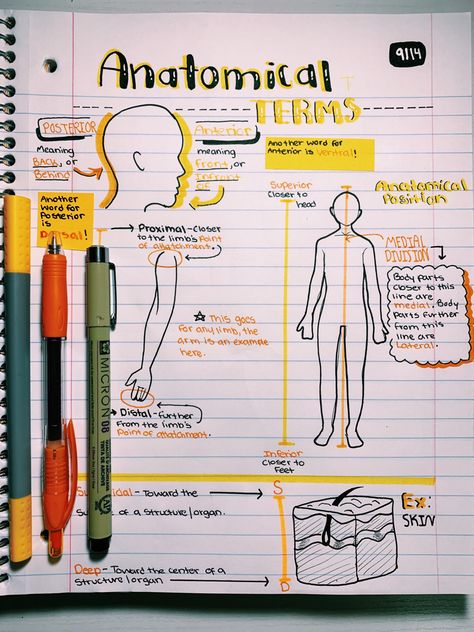 9/14
Anatomical
TERMS
POSTERIOR
Meaning
BACK, or
Behind
Anterior
meaning
Front, or
Infront
of
Another word for
Anterior is ventral!
Another
word for
Posterior
is
Dorsal!
Proximal-closer
to the limb's Point
of attatchment.
☆ This goes
for any limb, the
arm is an example
here.
Distal-further
From the limb's
Point of attatchment.
Superior
Closer to
head
Inferior
Closer to
Feet
Anatomical
Position
MEDIAL
DIVISION
Body parts
closer to this
line are
medial. Body
parts further
from this
line are
Lateral.
MICRON 08
Toward the
of a structure/organ.
Deep-Toward the center of a
structure/organ
S
D
Ex:
SKIN